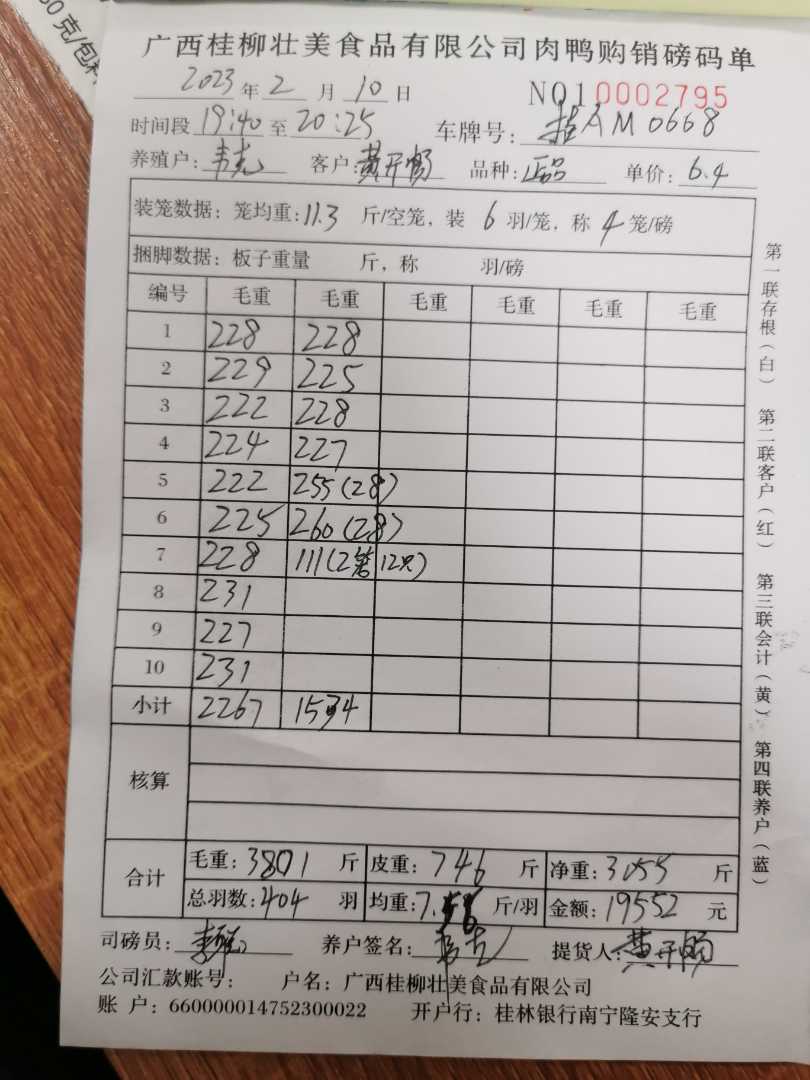 0克/包
广西桂柳壮美食品有限公司肉鸭购销磅码单
2023年2月10日 NO10002795
时间段19:40至20:25 车牌号:桂AM0668
养殖户:韦克 客户:黄开畅 品种:正品 单价:6.4
装笼数据:笼均重:11.3 斤/空笼,装 6 羽/笼,称 4 笼/磅
捆脚数据:板子重量 斤,称 羽/磅
编号 毛重 毛重 毛重 毛重 毛重 毛重
1 228 228
2 229 225
3 222 228
4 224 227
5 222 255(28)
6 225 260(28)
7 228 111(2笼12只)
8 231
9 227
10 231
小计 2267 1534
核算
合计 毛重:3801斤 皮重:746斤 净重:3055斤
总羽数:404羽 均重:7.56斤/羽 金额:19552元
司磅员: 养户签名:韦克 提货人:黄开畅
公司汇款账号: 户名:广西桂柳壮美食品有限公司
账 户:660000014752300022 开户行:桂林银行南宁隆安支行
第一联存根(白) 第二联客户(红) 第三联会计(黄) 第四联养户(蓝)